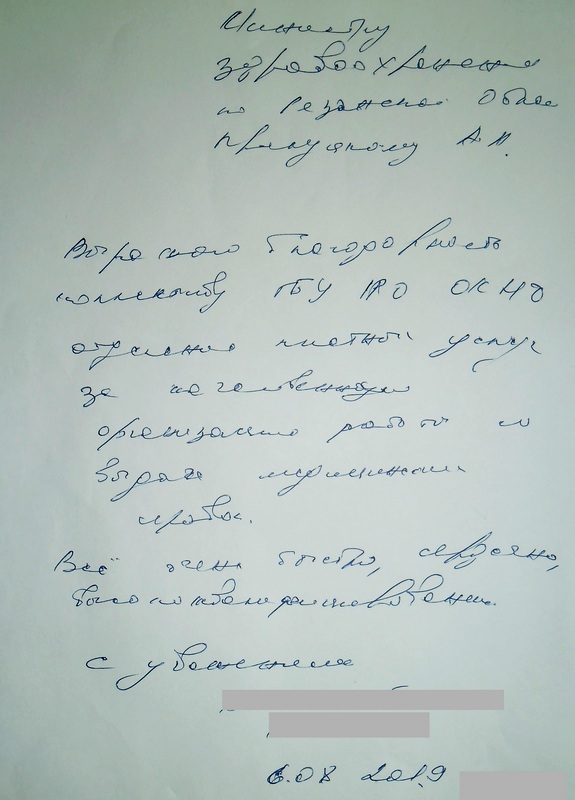 Министру
здравоохранения
по Рязанской Облас
Прилуцкому А.И.
Выражаю благодарность
коллективу ГБУ РО ОКНД
отделению платных услуг
за качественную
организацию работы и
выдачи медицинских
справок.
Всё очень быстро, сердечно,
высококвалифицированно.
С уважением
6.08 2019